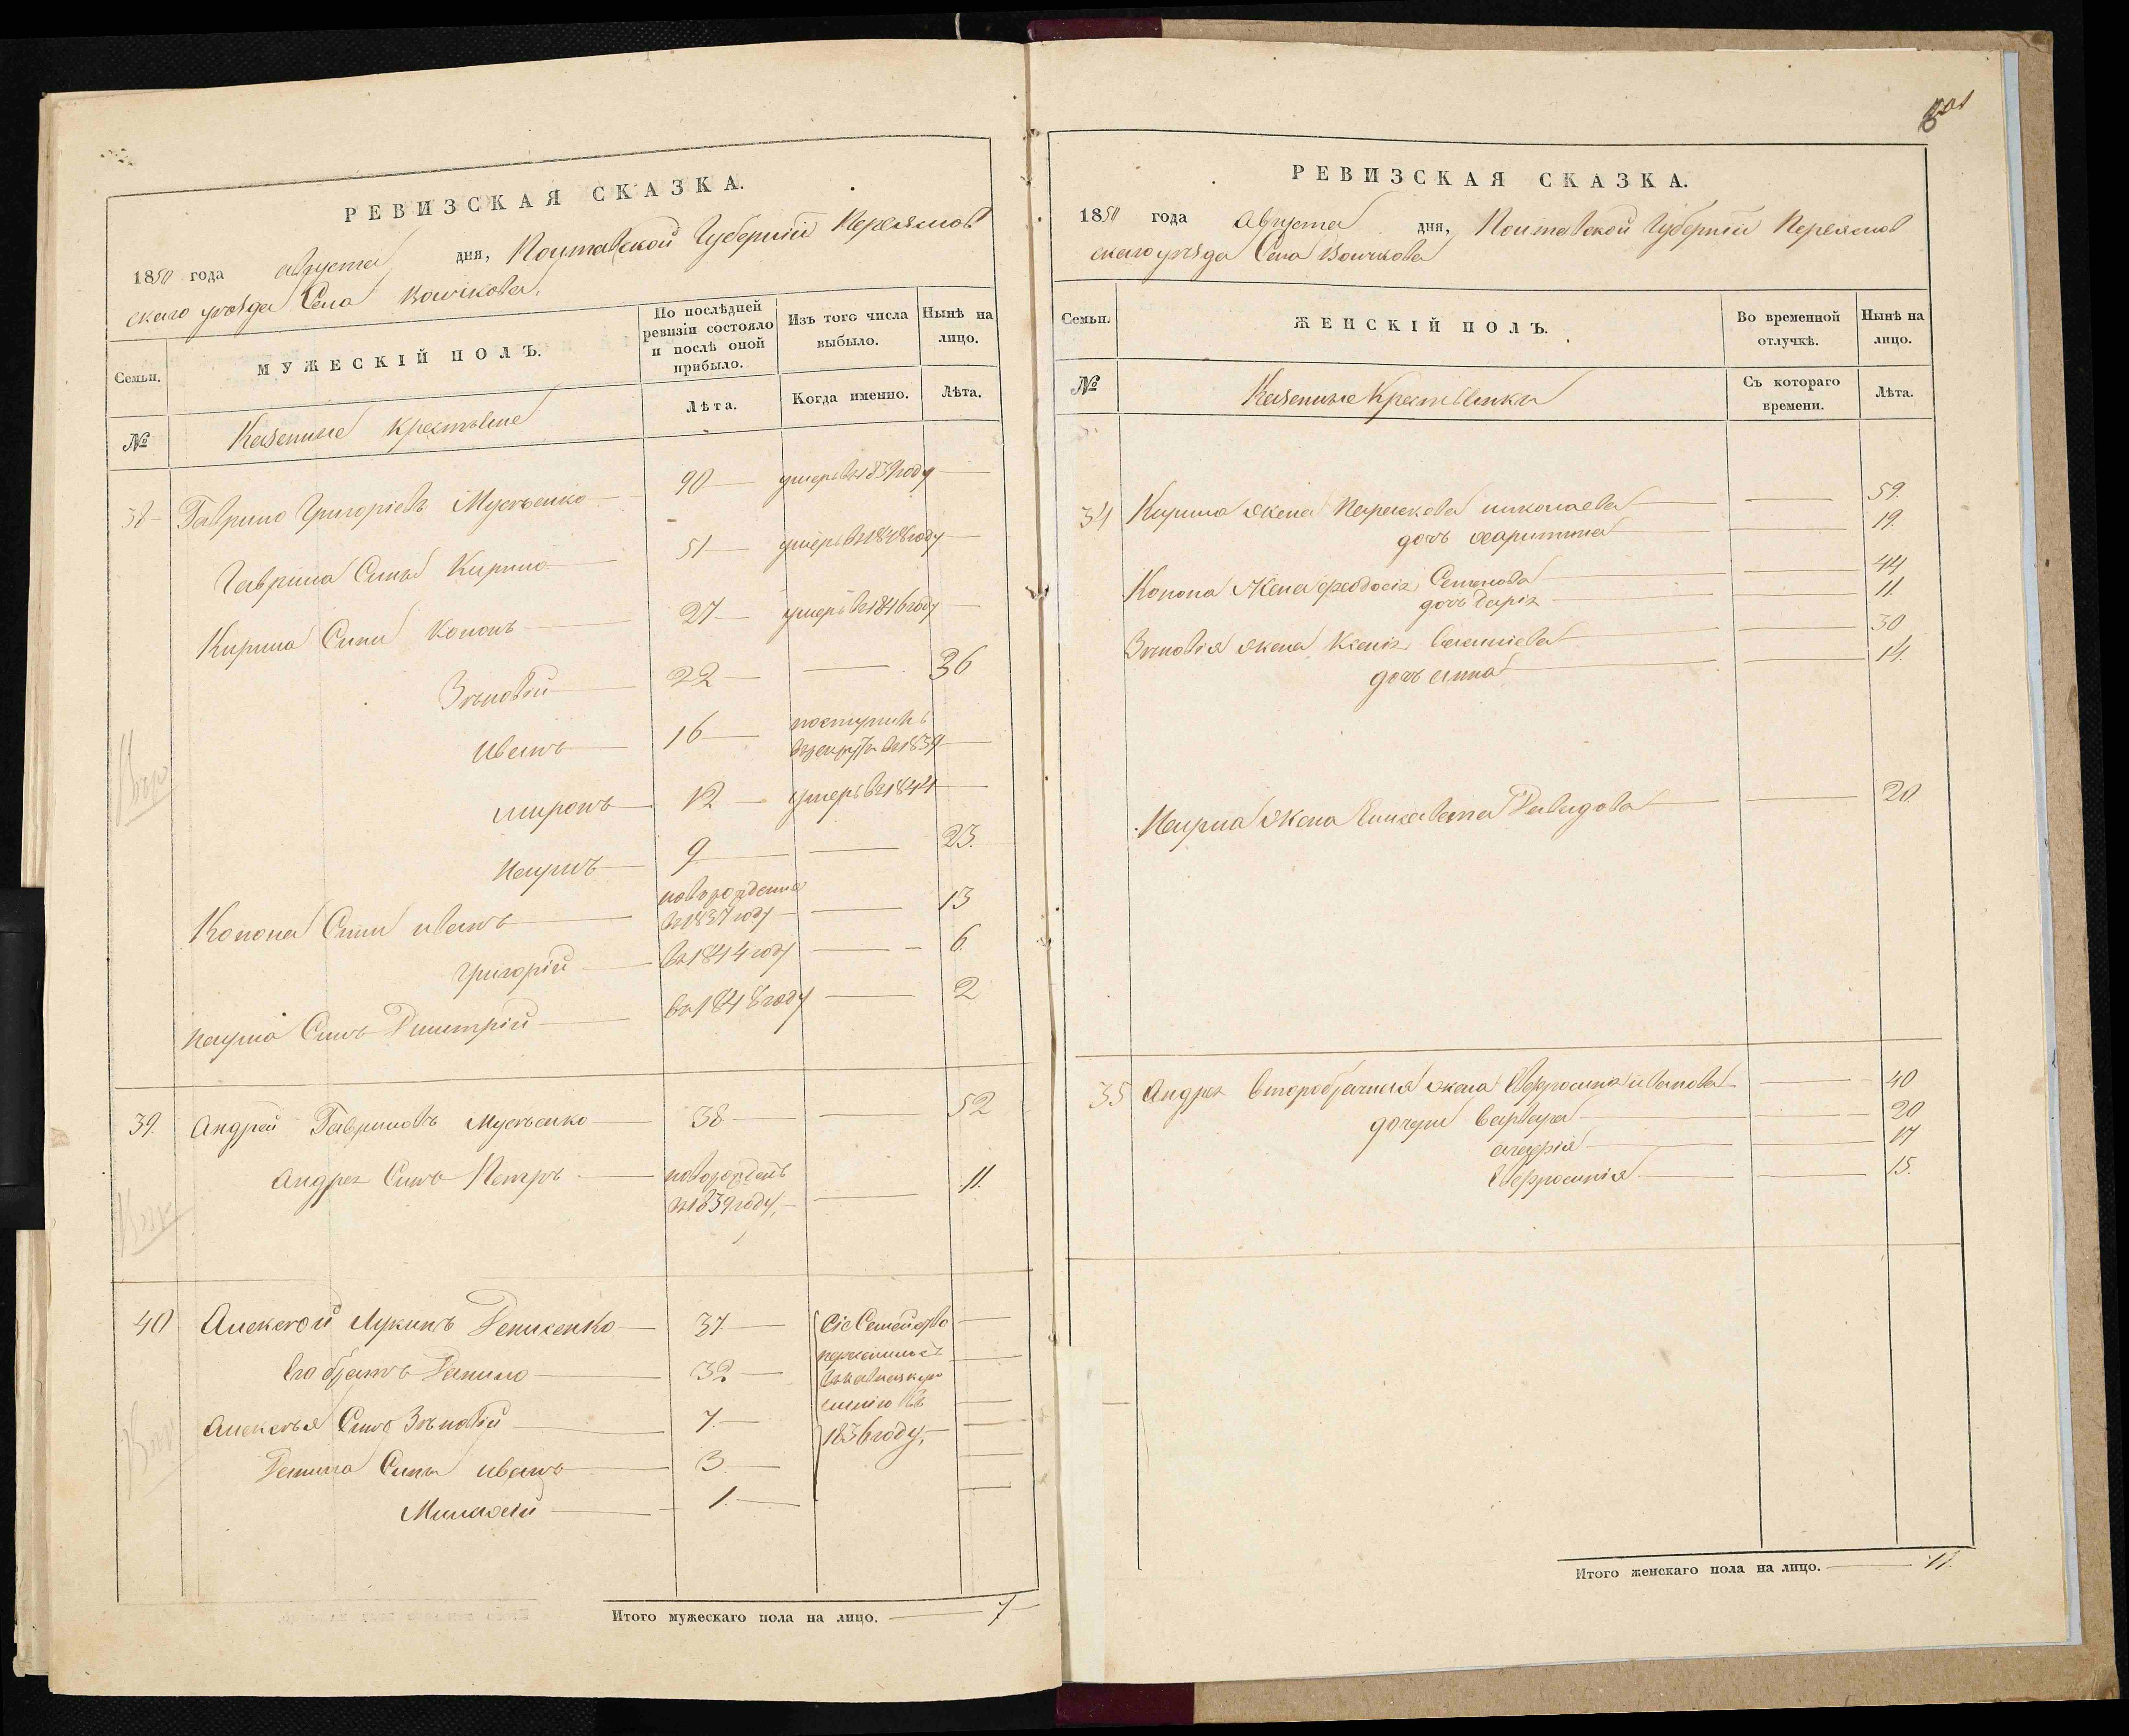 РЕВИЗСКАЯ СКАЗКА.
1850 года августа дня, Полтавской Губерніи Переяслов
скаго уезда Села Войчкова,
Семьи.
МУЖЕСКІЙ ПОЛЪ.
По послѣдней
ревизіи состояло
и послѣ оной
прибыло.
Изъ того числа
выбыло.
Нынѣ на
лицо.
№
Казенные крестьяне
Лѣта.
Когда именно.
Лѣта.
38 Гаврило Григоріевъ Мусѣенко 90 умеръ въ 1839 году
Гаврила Сынъ Кирило 51 умеръ въ 1848 году
Кирила Сыны Кононъ 27 умеръ въ 1846 году
Зѣновій 22 36
Иванъ 16 поступилъ
въ 1839
миронъ 12 умеръ въ 1844
Наумъ 9 23.
Конона Сыны иванъ новорожденные
въ 1837 году 13
григорій въ 1844 году 6.
Наума Сынъ Дмитрій въ 1848 году 2
39. Андрей Гавриловъ Мусѣенко 38 52
Андрея Сынъ Петръ новорожденъ
въ 1839 году, 11.
40 Алексѣй Лукинъ Денисенко 37. Сіе Семейство
Его братъ Данило 32
Алексѣя Сынъ Зѣновій 7. линію въ
1836 году,
Данила Сыны иванъ 3.
1.
Итого мужескаго пола на лицо. 7
РЕВИЗСКАЯ СКАЗКА.
1850 года августа дня, Полтавской Губерніи Переяслов
скаго уезда Села Войчкова
Семьи.
ЖЕНСКІЙ ПОЛЪ.
Во временной
отлучкѣ.
Нынѣ на
лицо.
№
Казенные Крестьянки
Съ котораго
времени.
Лѣта.
34 Кирила жена Параскева николаева 59.
дочь харитина 19.
Конона Жена феодосія Семенова 44
дочь Дарія 11.
Зѣновія жена Ксенія 30
дочь анна 14.
Наума Жена Елисавета Давидова 20.
35 Андрея второбрачная жена Евфросинія иванова 40
дочери Варвара 20
17
Евфросинія 15.
Итого женскаго пола на лицо. 11.